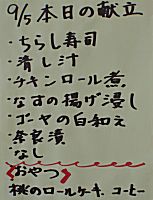 9/5 本日の献立
・ちらし寿司
・清し汁
・チキンロール煮
・なすの揚げ浸し
・ゴーヤの白和え
・奈良漬
・なし
《おやつ》
桃のロールケーキ、コーヒー